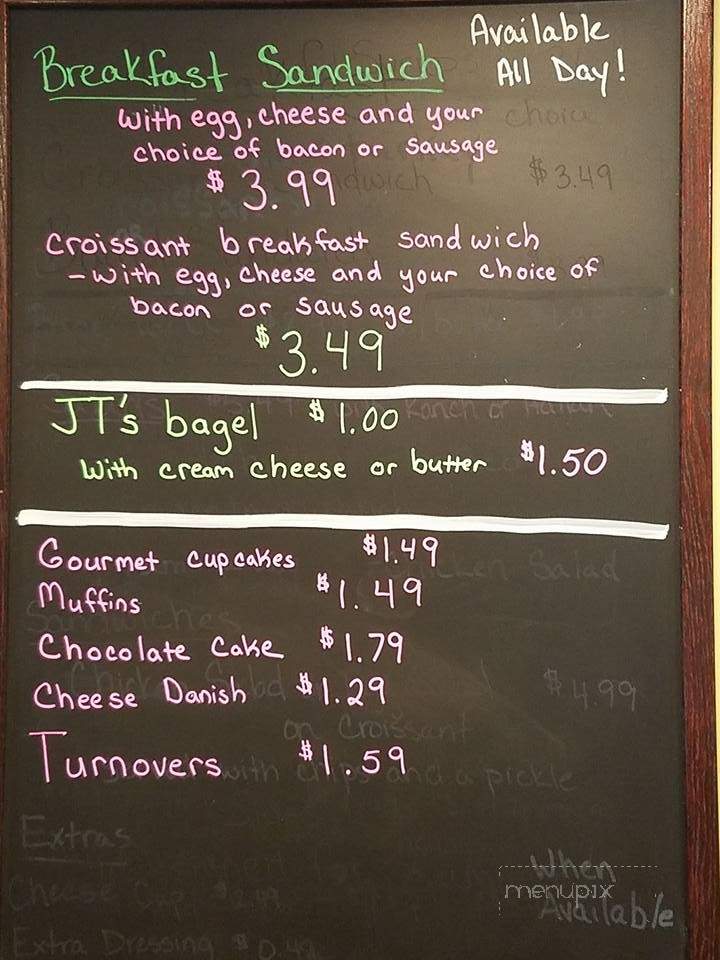 Breakfast Sandwich
Available
All Day!
with egg, cheese and your
choice of bacon or sausage
$3.99
$3.49
croissant breakfast sandwich
-with egg, cheese and your choice of
bacon or sausage
$3.49
JT's bagel $1.00
with cream cheese or butter $1.50
Gourmet cupcakes $1.49
Muffins $1.49
Chocolate cake $1.79
Cheese Danish $1.29
$4.99
on Croissant
Turnovers $1.59
with chips and a pickle
Extras
When
menupix
Available
Extra Dressing $0.49